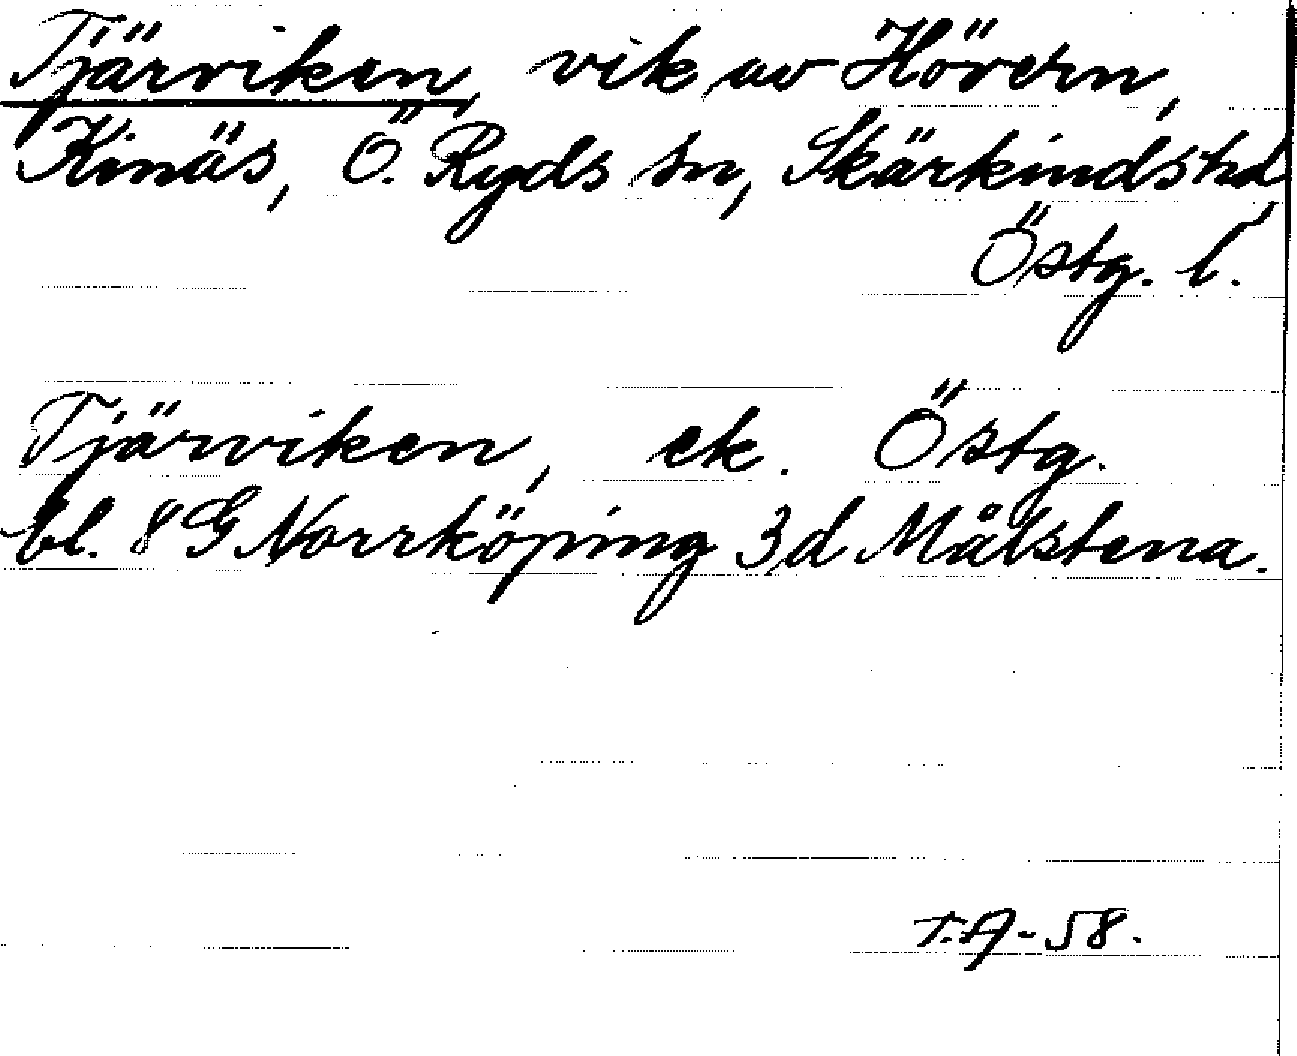 Tjärviken, vik av Hövern,
Kinäs, Ö. Ryds sn, Skärkinds hd
Östg. l.
Tjärviken, ek. Östg.
bl. 8 G Norrköping 3d Målstena.
T.A-58.